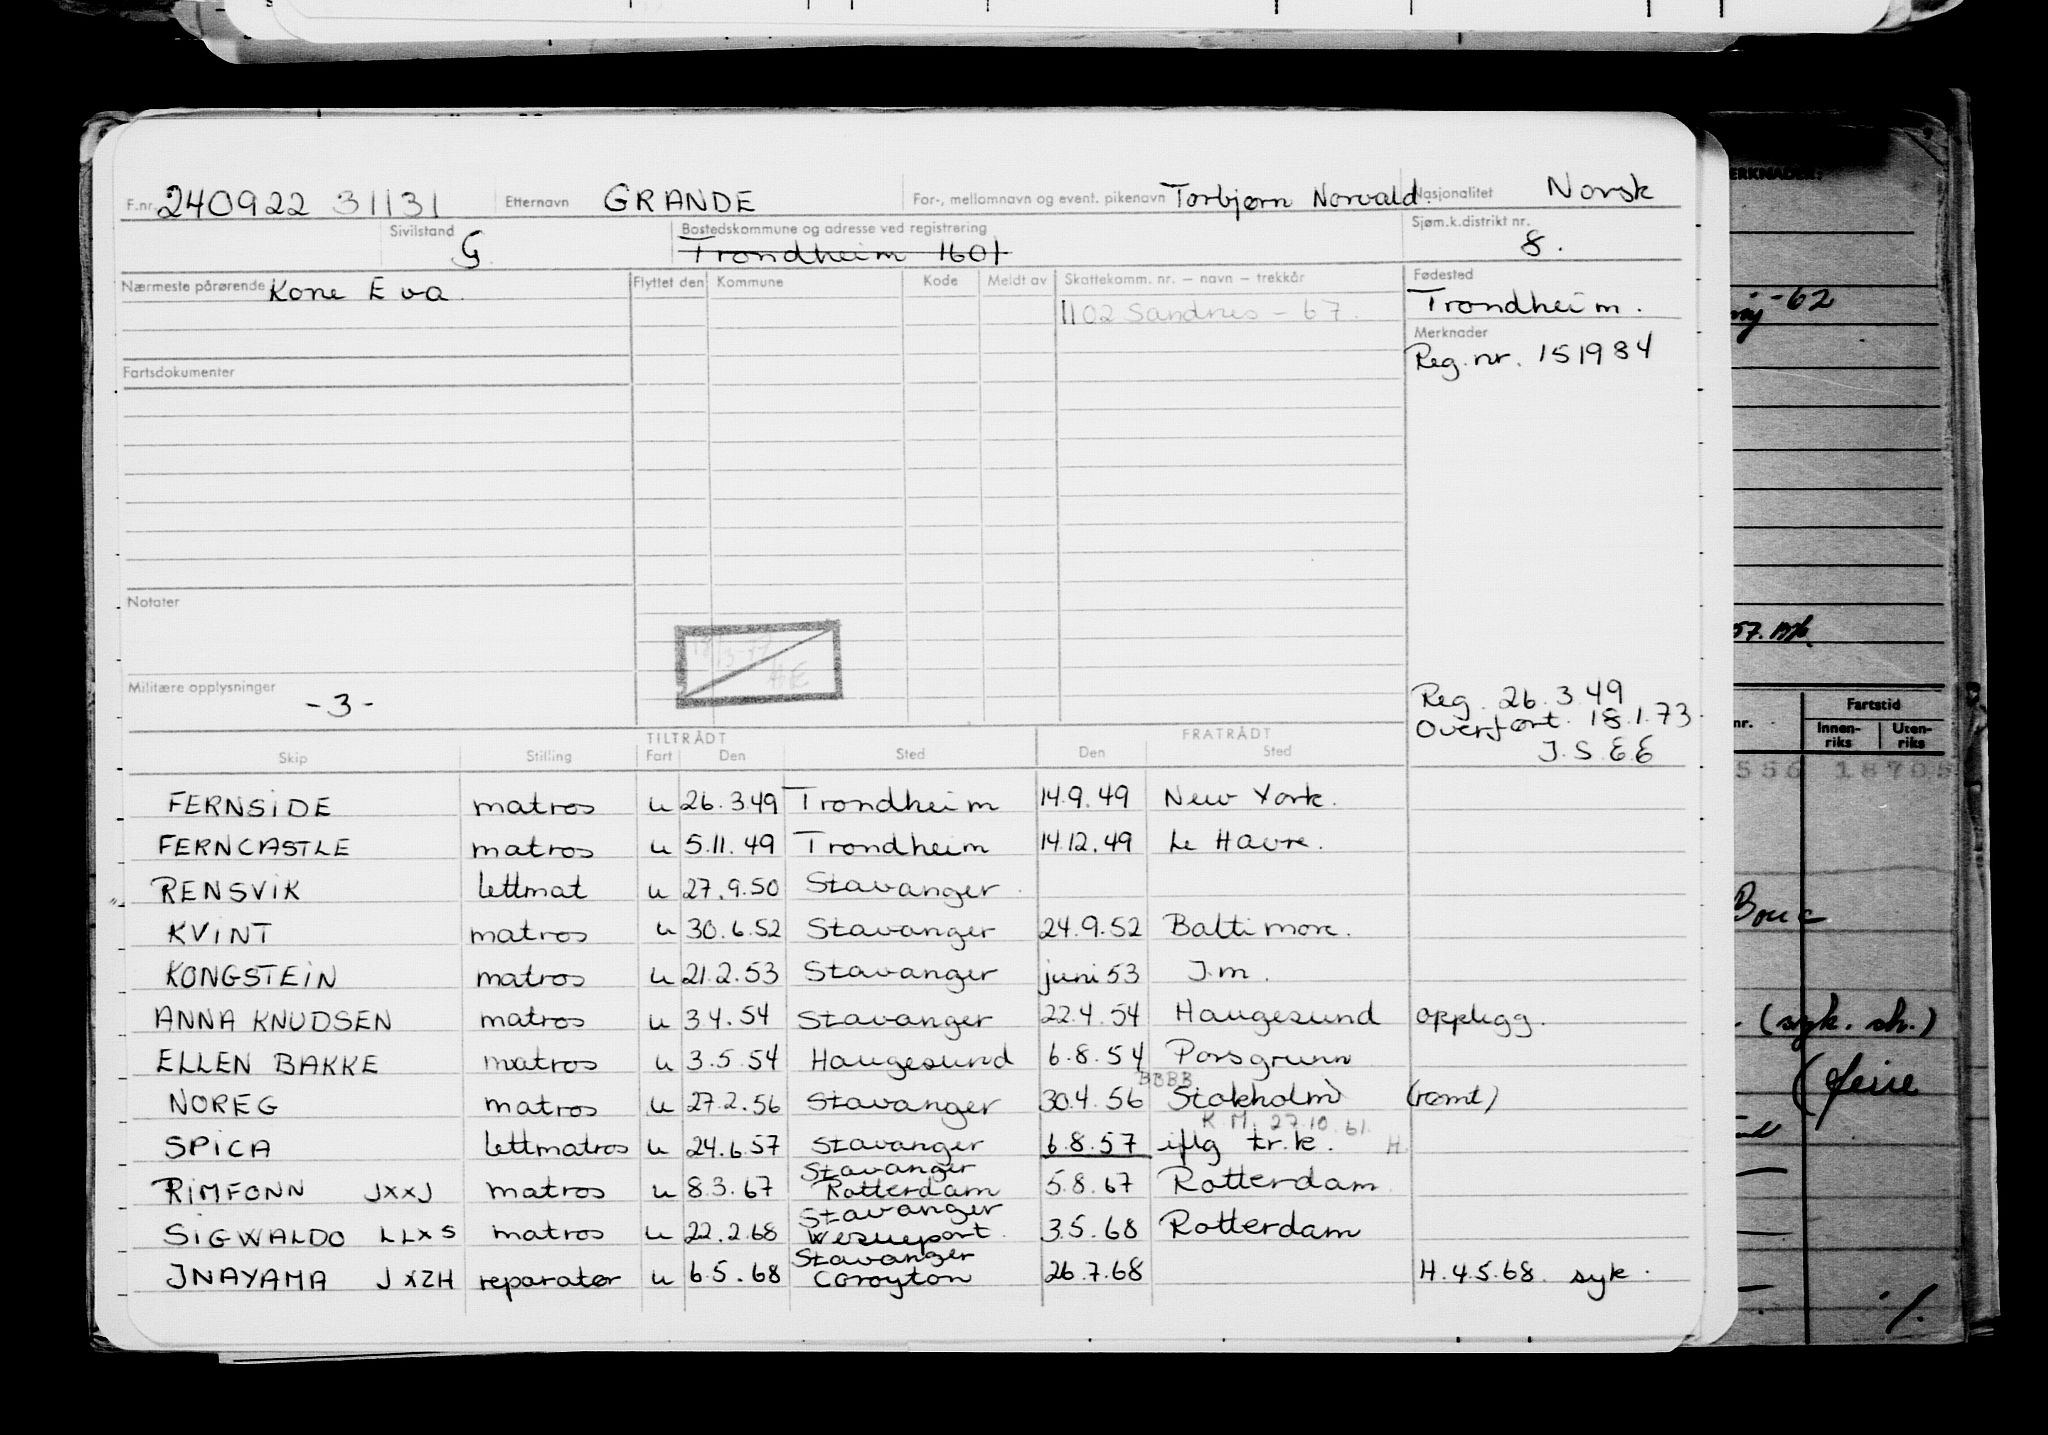 F.nr. 240922 31131 Etternavn GRANDE For-, mellomnavn og event. pikenavn Torbjørn Norvald. Nasjonalitet Norsk
Sivilstand G Bostedskommune og adresse ved registrering Trondheim 1601 Sjøm.k.distrikt nr. 8.
Nærmeste pårørende Kone Eva Flyttet den Kommune Kode Meldt av Skattekomm. nr. — navn — trekkår Fødested
1102 Sandnes - 67. Trondheim.
Merknader
Reg. nr. 151984
Fartsdokumenter
Notater
Militære opplysninger
- 3 -
Reg. 26.3.49
Overført. 18.1.73
TILTRÅDT FRATRÅDT
J.S.E.E
Skip Stilling Fart Den Sted Den Sted
FERNSIDE matros u 26.3.49 Trondheim 14.9.49 New York.
FERNCASTLE matros u 5.11.49 Trondheim 14.12.49 Le Havre.
RENSVIK lettmat u 27.9.50 Stavanger.
KVINT matros u 30.6.52 Stavanger 24.9.52 Baltimore.
KONGSTEIN matros u 21.2.53 Stavanger juni 53 I.m.
ANNA KNUDSEN matros u 3.4.54 Stavanger 22.4.54 Haugesund opplegg.
ELLEN BAKKE matros u 3.5.54 Haugesund 6.8.54 Porsgrunn
BBBB
NOREG matros u 27.2.56 Stavanger 30.4.56 Stokholm (rømt)
K.M. 27.10.61.
SPICA lettmatros u 24.6.57 Stavanger 6.8.57 iflg tr.k. H.
Stavanger
RIMFONN JXXJ matros u 8.3.67 Rotterdam 5.8.67 Rotterdam
Stavanger
SIGWALDO LLXS matros u 22.2.68 3.5.68 Rotterdam
Stavanger
INAYAMA JXZH reparatør u 6.5.68 Coroyton 26.7.68 H.4.5.68. syk.
ERKNADER:
-62
57.
nr. Fartstid
Innen-riks Uten-riks
556 18705
Bouc
(syk. sk.)
(ferie